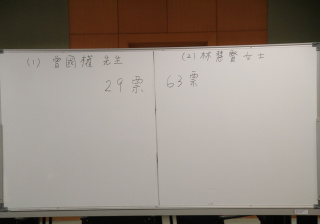 (1) 曾國權 先生
29票
(2) 林慧寶 女士
63票